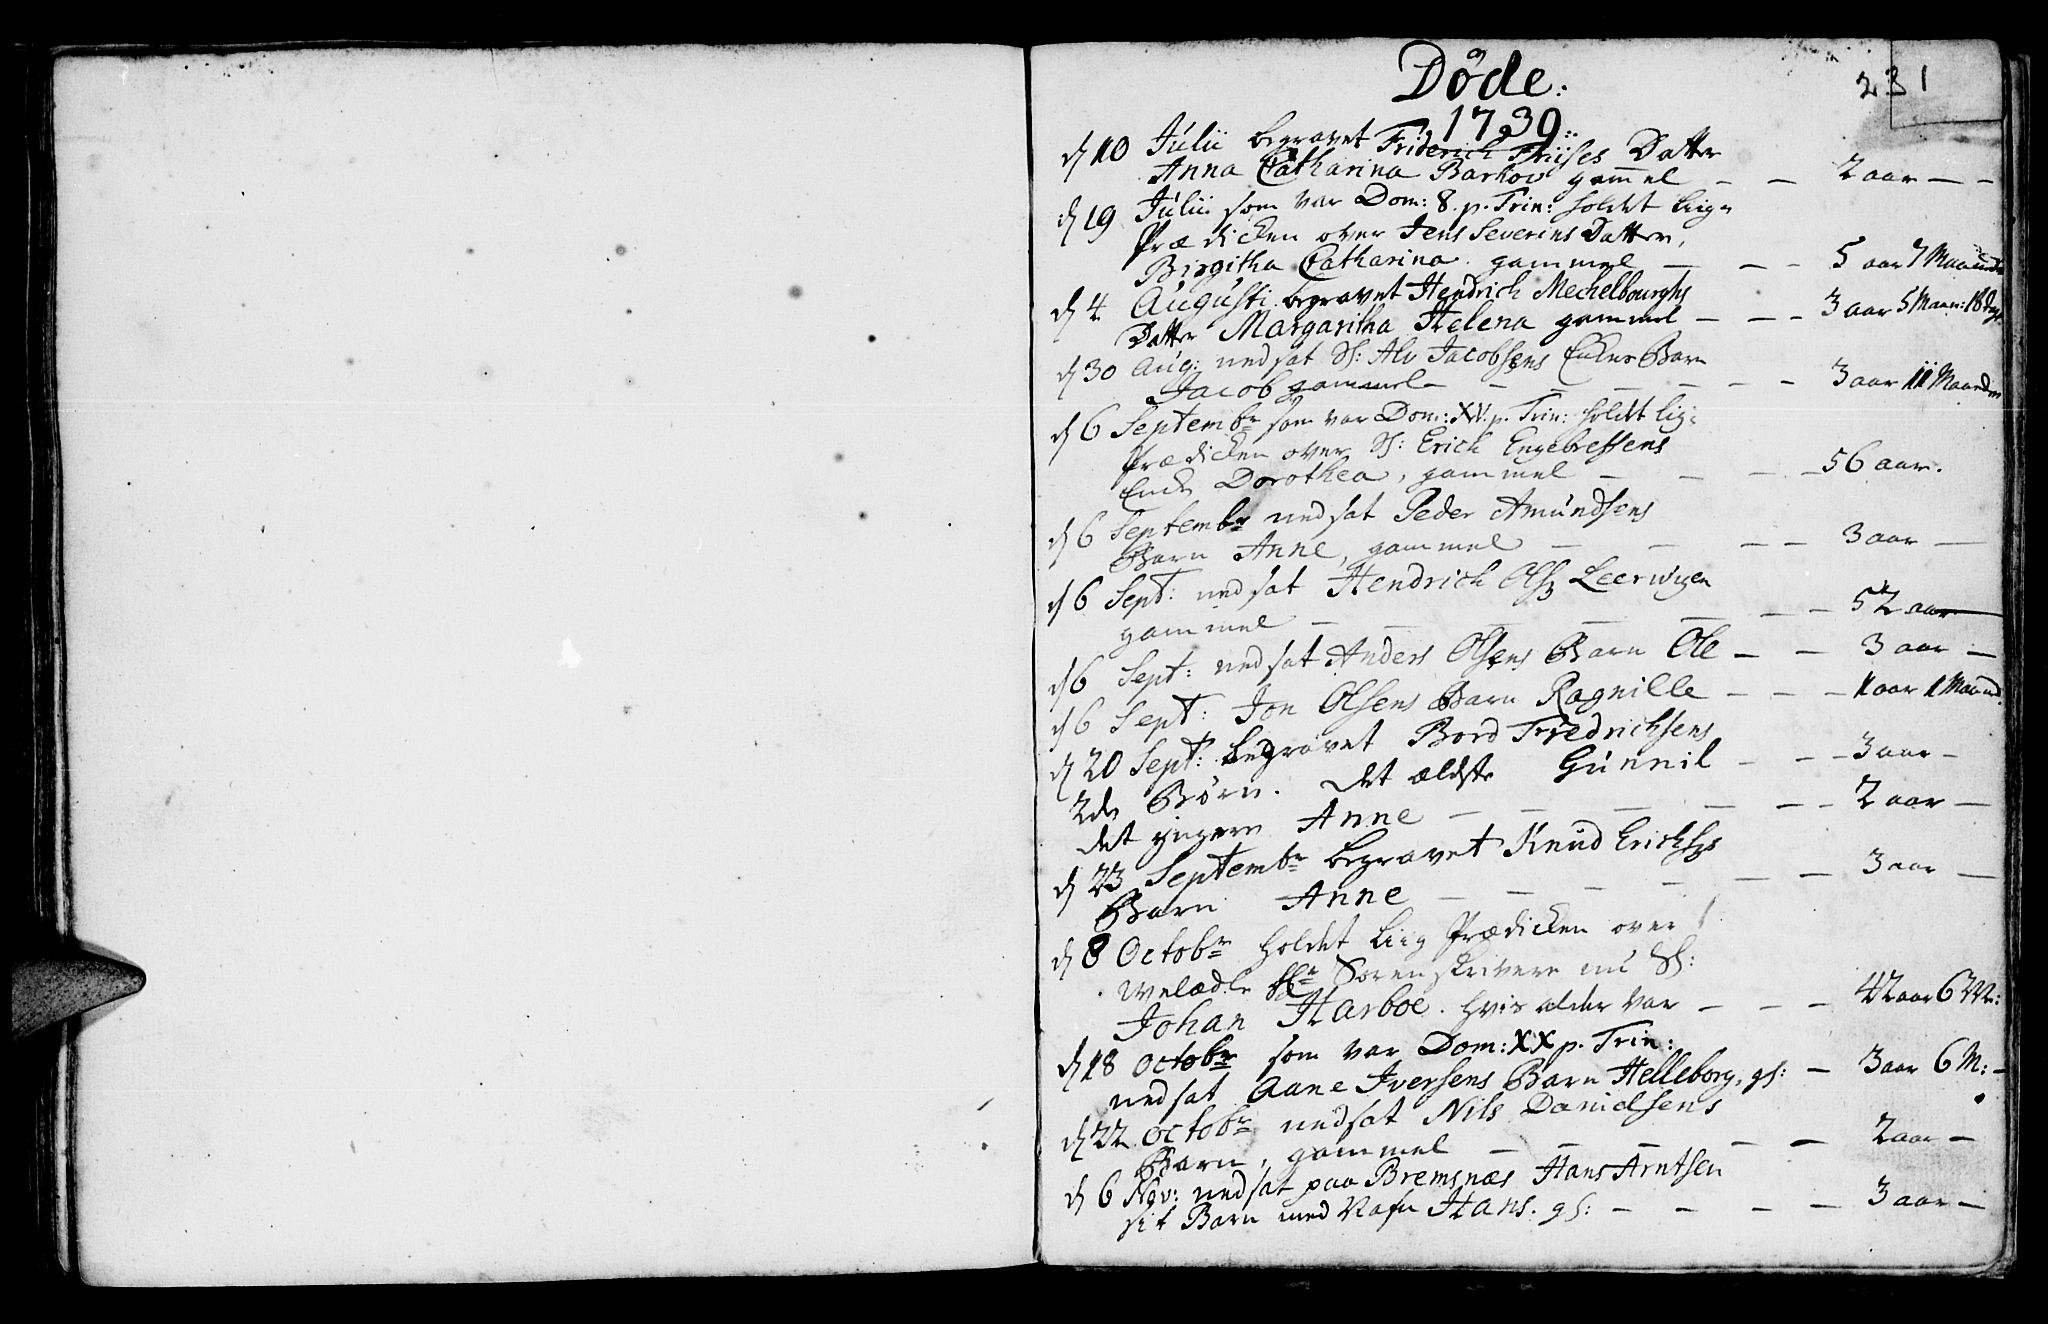 Døde:
231
1739:
d 10 Julii begravet Friderich Friises Datter
Anna Catharina Barhow gammel — — 2 aar — —
d 19 Julii som var Dom: 8. p. Trin: holdet Liig-
Prædicken over Jens Severins Datter,
Birgitha Catharina. gammel — — — 5 aar 7 Maaneder
d 4. Augusti begravet Hendrich Mechelbourghs
Datter Margaritha Helena gammel — — — 3 aar 5 Maan: 18 dage
d 30 Aug: nedsat Sl: Alv Jacobsens Enkes Barn
Jacob gammel — — — — — — — 3 aar 11 Maaneder
d 6 Septembr som var Dom: XV. p. Trin: holdt lig-
prædicken over Sl: Erich Engebretsens
Enke Dorothea, gammel — — — — 56 aar.
d 6 Septembr nedsat Peder Amundsens
Barn Anne, gammel — — — — 3 aar —
d 6 Sept: nedsat Hendrich Ols: Leerwigen
gammel — — — — — — 52 aar
d 6 Sept: nedsat Anders Olsens Barn Ole — — 3 aar —
d 6 Sept: Jon Olsens Barn Ragnille — — — 1 aar 1 Maaned.
d 20 Sept: begravet Bord Fredrichsens
2de Børn. det ældste Gunnil — — — 3 aar —
det yngere Anne — — — — — — 2 aar —
d 23 Septembr begravet Knud Erichs:s
Barn Anne — — — — — — 3 aar —
d 8 Octobr holdet Liig Prædicken over
welædle Hr Sorenskrivere nu Sl:
Johan Harboe. hvis alder var — — — 42 aar 6 M:
d 18 Octobr som var Dom: XX p. Trin:
nedsat Aane Iversens Barn Helleborg, gl: — 3 aar 6 M: —
d 22 Octobr nedsat Nils Danielsens
Barn, gammel — — — — — 2 aar —
d 6 Nov: nedsat paa Bremsnæs Hans Arntsen
sit Barn med Nafn Hans. gl: — — — — 3 aar —